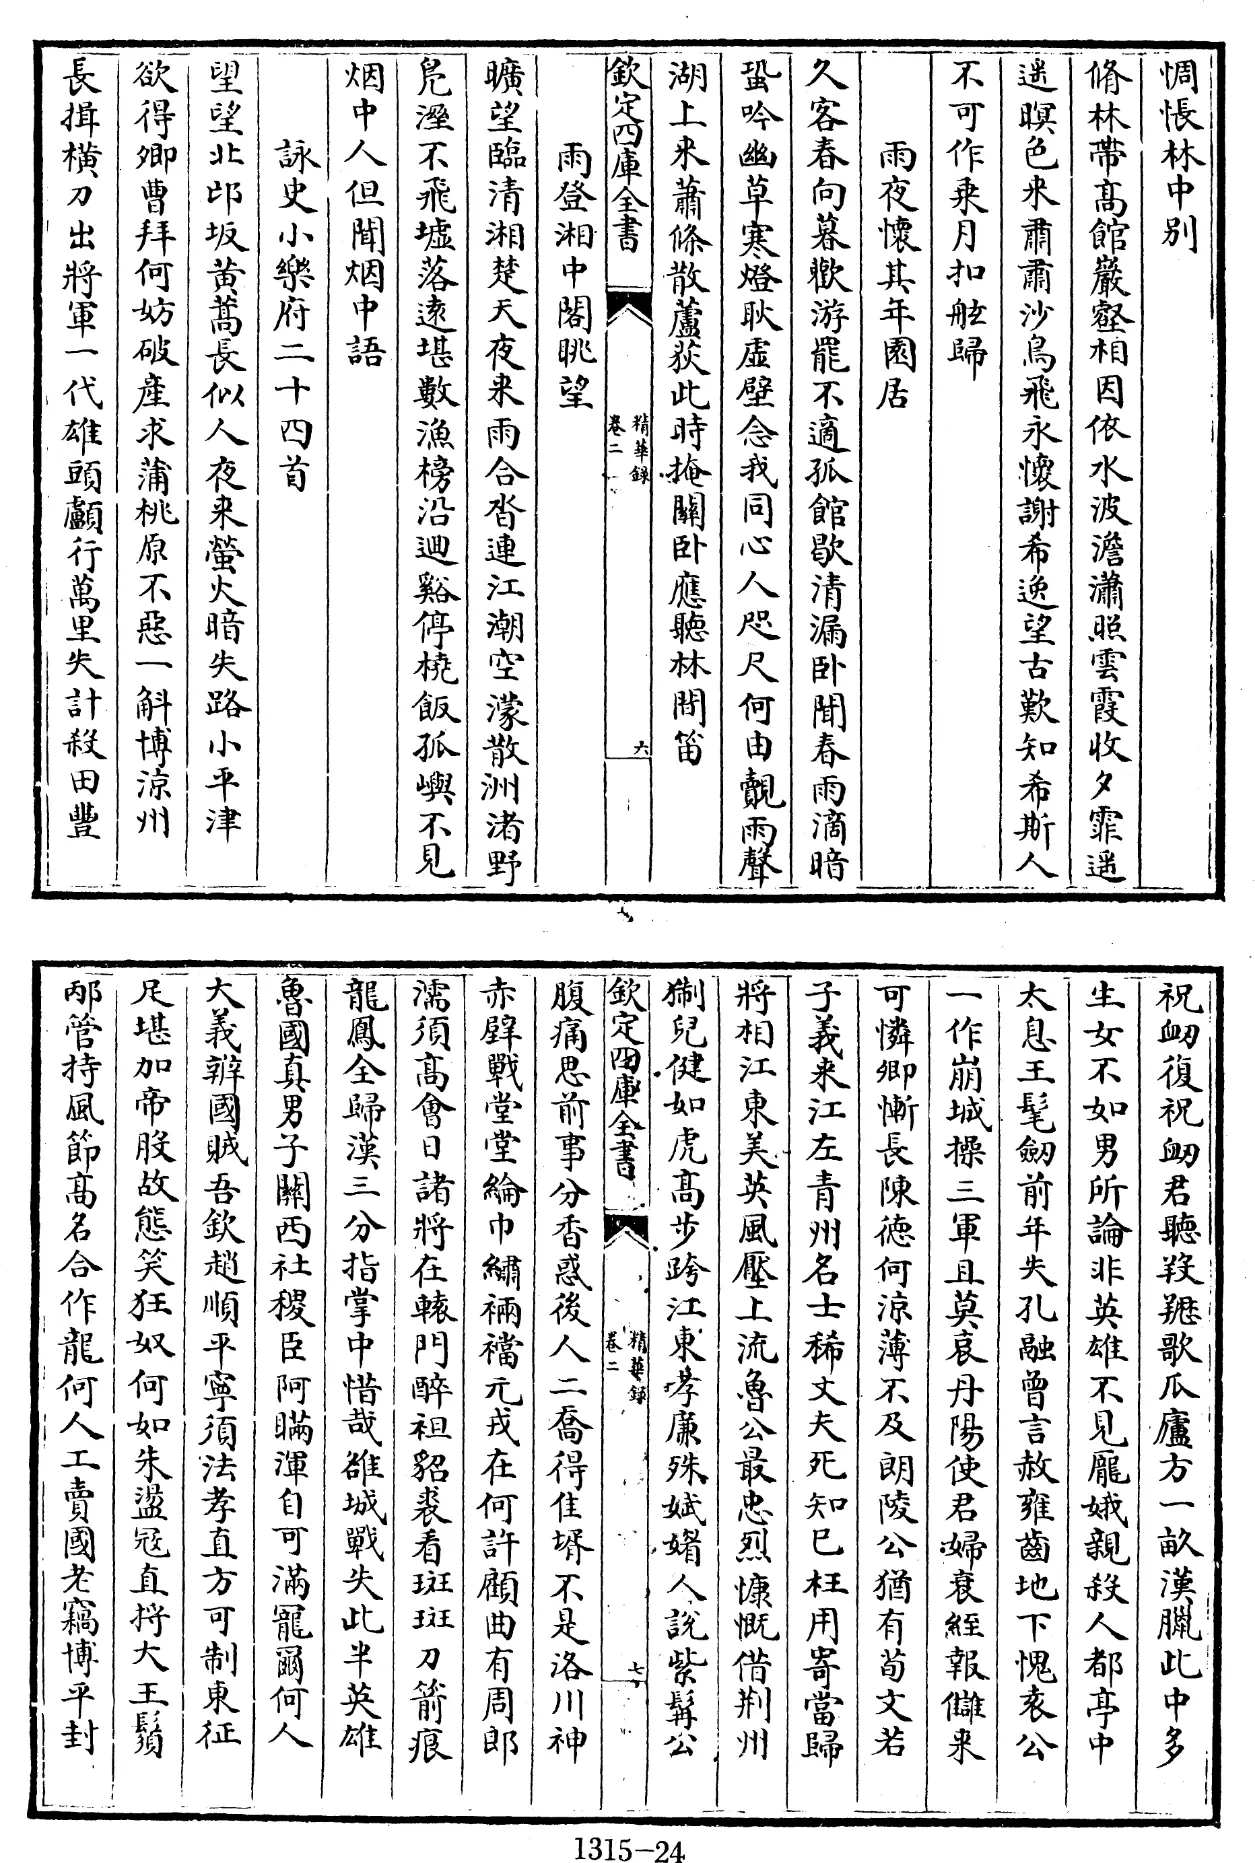 惆悵林中别
脩林帶髙館巖壑相因依水波澹瀟照雲霞收夕霏遥
遥暝色来肅肅沙鳥飛永懷謝希逸望古歎知希斯人
不可作乘月扣舷歸
雨夜懷其年園居
久客春向暮歡游罷不適孤館歇清漏卧聞春雨滴暗
蛩吟幽草寒燈耿虚壁念我同心人咫尺何由覿雨聲
湖上来蕭條散蘆荻此時掩關卧應聽林間笛
欽定四庫全書
精華録
卷二
六
雨登湘中閣眺望
曠望臨清湘楚天夜来雨合沓連江潮空濛散洲渚野
凫溼不飛墟落逺堪數漁榜沿洄谿停橈飯孤嶼不見
烟中人但聞烟中語
詠史小樂府二十四首
望望北邙坂黄蒿長似人夜来螢火暗失路小平津
欲得卿曹拜何妨破産求蒲桃原不惡一斛博涼州
長揖横刀出將軍一代雄頭顱行萬里失計殺田豐
祝衂復祝衂君聽羖䍽歌瓜廬方一畝漢臘此中多
生女不如男所論非英雄不見龐娥親殺人都亭中
太息王髦劒前年失孔融曾言赦雍齒地下愧袁公
一作崩城操三軍且莫哀丹陽使君婦衰絰報讎来
可憐卿慚長陳德何涼薄不及朗陵公猶有荀文若
子義来江左青州名士稀丈夫死知已枉用寄當歸
將相江東美英風壓上流魯公最忠烈慷慨借荆州
猘兒健如虎髙步跨江東孝廉殊娬媚人説紫髯公
欽定四庫全書
精華録
卷二
七
腹痛思前事分香惑後人二喬得佳壻不是洛川神
赤壁戰堂堂綸巾繡裲襠元戎在何許顧曲有周郎
濡須髙㑹日諸將在轅門醉袒貂裘看斑斑刀箭痕
龍鳳全歸漢三分指掌中惜哉雒城戰失此半英雄
魯國真男子關西社稷臣阿瞞渾自可滿寵爾何人
大義辨國賊吾欽趙順平寧須法孝直方可制東征
足堪加帝股故態笑狂奴何如朱盪冦直捋大王鬚
邴管持風節髙名合作龍何人工賣國老竊博平封
1315-24